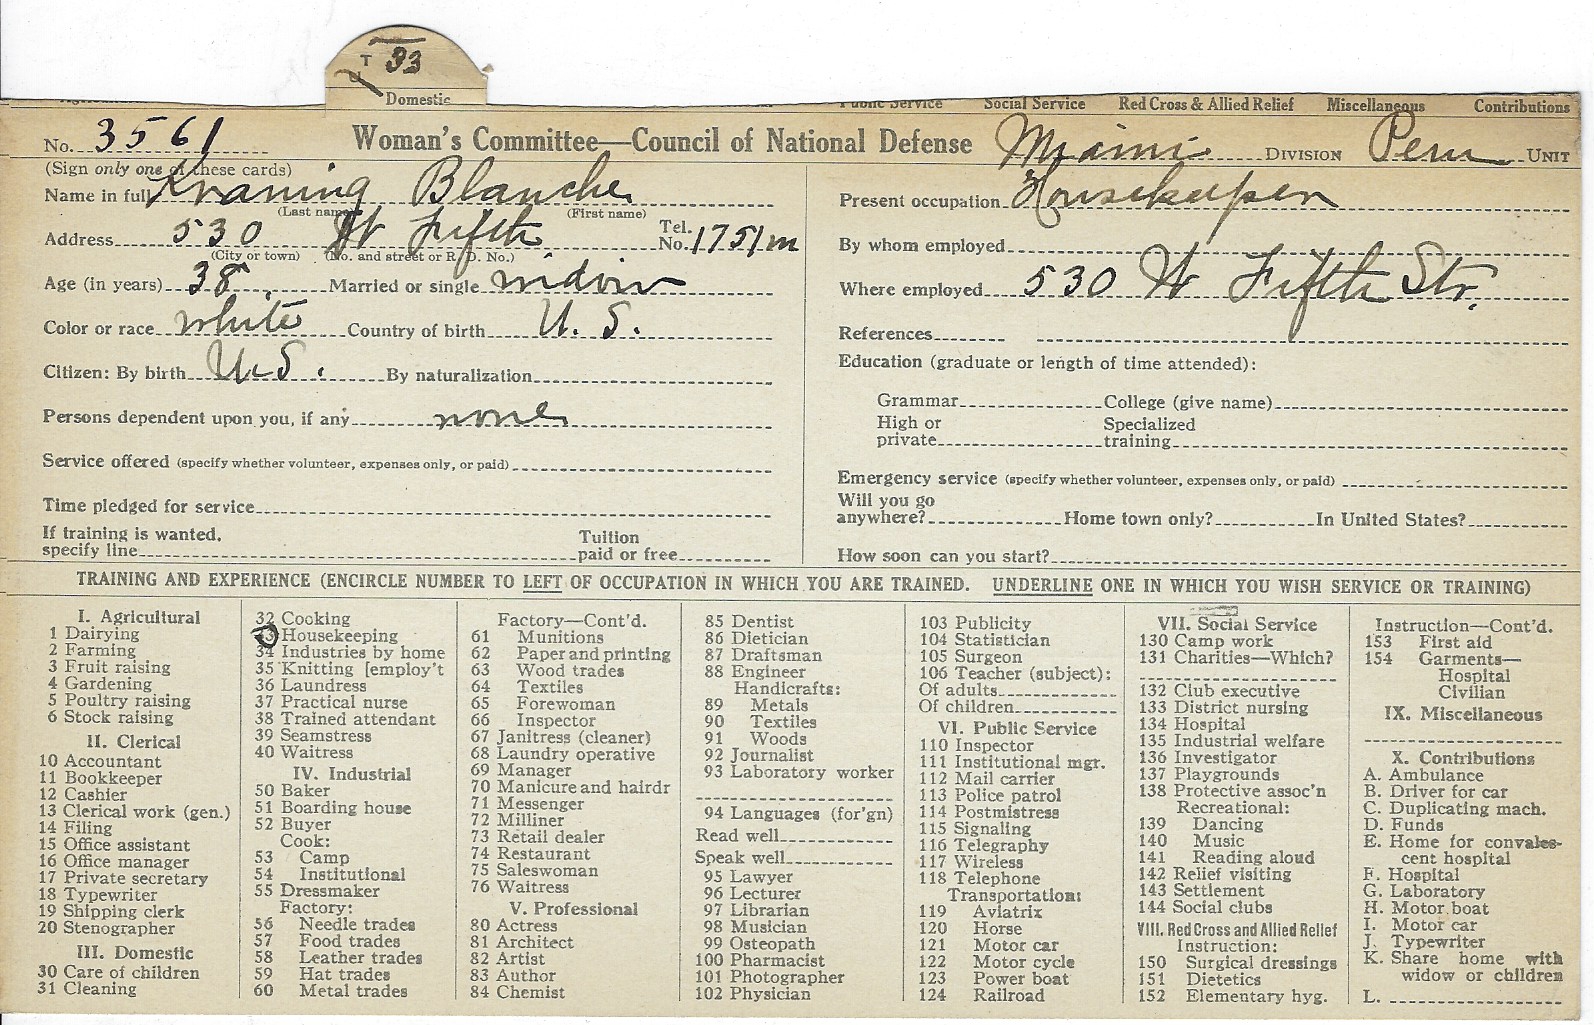 T 33
U
Domestic
Public Service Social Service Red Cross & Allied Relief Miscellaneous Contributions
No. 3561 Woman's Committee—Council of National Defense Miami DIVISION Peru UNIT
(Sign only one of these cards)
Name in full Kraning Blanche
(Last name) (First name)
Address 530 W Fifth Tel. No. 1751m
(City or town) (No. and street or R. D. No.)
Age (in years) 38 Married or single widow
Color or race white Country of birth U. S.
Citizen: By birth U.S. By naturalization
Persons dependent upon you, if any none
Service offered (specify whether volunteer, expenses only, or paid)
Time pledged for service
If training is wanted,
specify line Tuition paid or free
Present occupation Housekeeper
By whom employed
Where employed 530 W Fifth Str.
References
Education (graduate or length of time attended):
Grammar College (give name)
High or private Specialized training
Emergency service (specify whether volunteer, expenses only, or paid)
Will you go
anywhere? Home town only? In United States?
How soon can you start?
TRAINING AND EXPERIENCE (ENCIRCLE NUMBER TO LEFT OF OCCUPATION IN WHICH YOU ARE TRAINED. UNDERLINE ONE IN WHICH YOU WISH SERVICE OR TRAINING)
I. Agricultural
1 Dairying
2 Farming
3 Fruit raising
4 Gardening
5 Poultry raising
6 Stock raising
II. Clerical
10 Accountant
11 Bookkeeper
12 Cashier
13 Clerical work (gen.)
14 Filing
15 Office assistant
16 Office manager
17 Private secretary
18 Typewriter
19 Shipping clerk
20 Stenographer
III. Domestic
30 Care of children
31 Cleaning
32 Cooking
33 Housekeeping
34 Industries by home
35 Knitting [employ't
36 Laundress
37 Practical nurse
38 Trained attendant
39 Seamstress
40 Waitress
IV. Industrial
50 Baker
51 Boarding house
52 Buyer
Cook:
53 Camp
54 Institutional
55 Dressmaker
Factory:
56 Needle trades
57 Food trades
58 Leather trades
59 Hat trades
60 Metal trades
Factory—Cont'd.
61 Munitions
62 Paper and printing
63 Wood trades
64 Textiles
65 Forewoman
66 Inspector
67 Janitress (cleaner)
68 Laundry operative
69 Manager
70 Manicure and hairdr
71 Messenger
72 Milliner
73 Retail dealer
74 Restaurant
75 Saleswoman
76 Waitress
V. Professional
80 Actress
81 Architect
82 Artist
83 Author
84 Chemist
85 Dentist
86 Dietician
87 Draftsman
88 Engineer
Handicrafts:
89 Metals
90 Textiles
91 Woods
92 Journalist
93 Laboratory worker
94 Languages (for'gn)
Read well
Speak well
95 Lawyer
96 Lecturer
97 Librarian
98 Musician
99 Osteopath
100 Pharmacist
101 Photographer
102 Physician
103 Publicity
104 Statistician
105 Surgeon
106 Teacher (subject):
Of adults
Of children
VI. Public Service
110 Inspector
111 Institutional mgr.
112 Mail carrier
113 Police patrol
114 Postmistress
115 Signaling
116 Telegraphy
117 Wireless
118 Telephone
Transportation:
119 Aviatrix
120 Horse
121 Motor car
122 Motor cycle
123 Power boat
124 Railroad
VII. Social Service
130 Camp work
131 Charities—Which?
132 Club executive
133 District nursing
134 Hospital
135 Industrial welfare
136 Investigator
137 Playgrounds
138 Protective assoc'n
Recreational:
139 Dancing
140 Music
141 Reading aloud
142 Relief visiting
143 Settlement
144 Social clubs
VIII. Red Cross and Allied Relief
Instruction:
150 Surgical dressings
151 Dietetics
152 Elementary hyg.
Instruction—Cont'd.
153 First aid
154 Garments—
Hospital
Civilian
IX. Miscellaneous
X. Contributions
A. Ambulance
B. Driver for car
C. Duplicating mach.
D. Funds
E. Home for convales-
cent hospital
F. Hospital
G. Laboratory
H. Motor boat
I. Motor car
J. Typewriter
K. Share home with
widow or children
L.